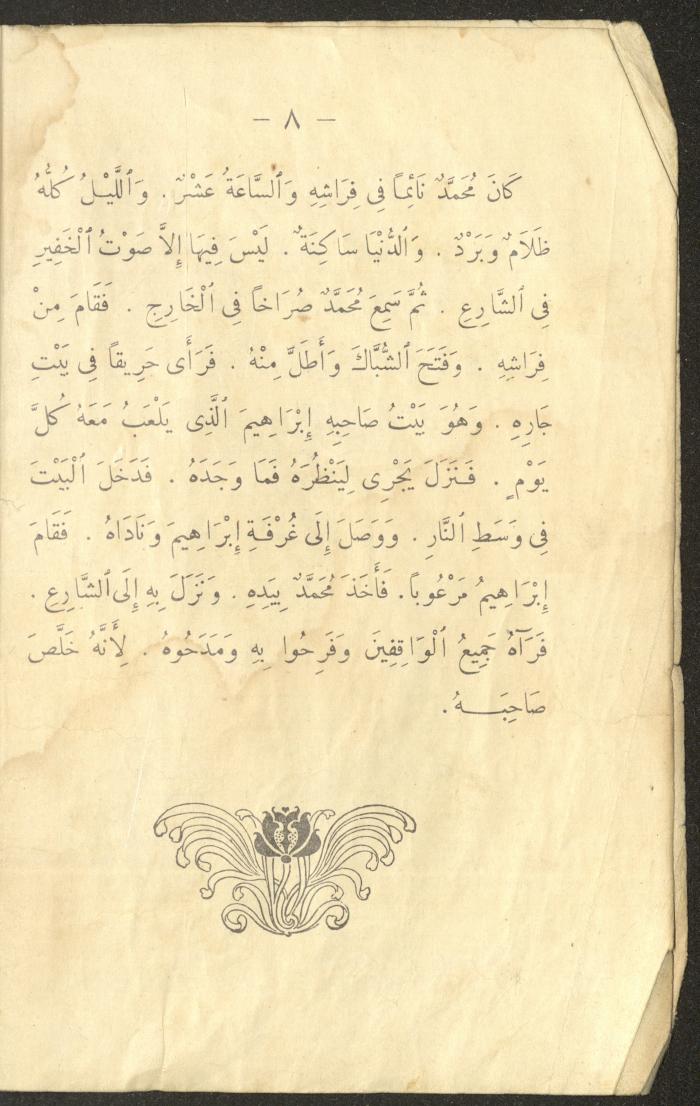 – ٨ –
كَانَ مُحَمَّدٌ نَائِماً فِى فِرَاشِهِ وَٱلسَّاعَةُ عَشْرٌ . وَٱللَّيْلُ كُلُّهُ
ظَلَامٌ وَبَرْدٌ . وَٱلدُّنْيَا سَاكِنَةٌ . لَيْسَ فِيهَا إِلاَّ صَوْتُ ٱلْخَفِيرِ
فِى ٱلشَّارِعِ . ثُمَّ سَمِعَ مُحَمَّدٌ صُرَاخاً فِى ٱلْخَارِجِ . فَقَامَ مِنْ
فِرَاشِهِ . وَفَتَحَ ٱلشُّبَّاكَ وَأَطَلَّ مِنْهُ . فَرَأَى حَرِيقاً فِى بَيْتِ
جَارِهِ . وَهُوَ بَيْتُ صَاحِبِهِ إِبْرَاهِيمَ ٱلَّذِى يَلْعَبُ مَعَهُ كُلَّ
يَوْمٍ . فَنَزَلَ يَجْرِى لِيَنْظُرَهُ فَمَا وَجَدَهُ . فَدَخَلَ ٱلْبَيْتَ
فِى وَسَطِ ٱلنَّارِ . وَوَصَلَ إِلَى غُرْفَةِ إِبْرَاهِيمَ وَنَادَاهُ . فَقَامَ
إِبْرَاهِيمُ مَرْعُوباً . فَأَخَذَ مُحَمَّدٌ بِيَدِهِ . وَنَزَلَ بِهِ إِلَى ٱلشَّارِعِ .
فَرَآهُ جَمِيعُ ٱلْوَاقِفِينَ وَفَرِحُوا بِهِ وَمَدَحُوهُ . لِأَنَّهُ خَلَّصَ
صَاحِبَـــهُ .